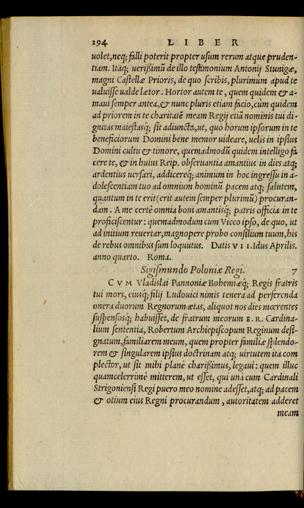 294 LIBER
uolet, neq; falli poterit propter usum rerum atque pruden-
tiam. Itaq; uerißimũ de illo testimonium Antonij Stunigæ,
magni Castellæ Prioris, de quo scribis, plurimum apud te
ualuisse ualde lætor. Hortor autem te, quem quidem & a-
maui semper antea, & nunc pluris etiam facio, cùm quidem
ad priorem in te charitatẽ meam Regij etiã nominis tui di-
gnitas maiestasq; sit adiuncta, ut, quo horum ipsorum in te
beneficiorum Domini bene memor uideare, uelis in ipsius
Domini cultu & timore, quemadmodũ quidem intelligo fa
cere te, & in huius Reip. obseruantia amantius in dies atq;
ardentius uersari, addicereq; animum in hoc ingressu in a-
dolescentiam tuo ad omnium hominũ pacem atq; salutem,
quantum in te erit (erit autem semper plurimũ) procuran-
dam. A me certè omnia boni amantisq; patris officia in te
proficiscentur: quemadmodum cum Vicco ipso, de quo, ut
ad initum reuertar, magnopere probo consilium tuum, his
de rebus omnibus sum loquutus. Datis VII. Idus Aprilis.
anno quarto. Roma.
Sigismundo Poloniæ Regi. 7
CVM Vladislai Pannoniæ Bohemiæq; Regis fratris
tui mors, eiusq; filij Ludouici nimis tenera ad perferenda
onera duorum Regnorum ætas, aliquot nos dies mœrentes
suspensosq; habuisset, de fratrum meorum E.R. Cardina-
lium sententia, Robertum Archiepiscopum Reginum desi-
gnatum, familiarem meum, quem propter familiæ splendo-
rem & singularem ipsius doctrinam atq; uirtutem ita com
plector, ut sit mihi planè charißimus, legaui: quem illuc
quamcelerrimè mitterem, ut esset, qui una cum Cardinali
Strigoniensi Regi puero meo nomine adesset, atq; ad pacem
& otium eius Regni procurandum, autoritatem adderet
meam